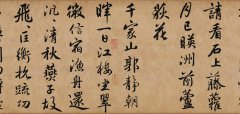 請看石上藤蘿
月已暎洲前蘆
荻花
千家山郭靜朝
暉一日江樓坐翠
微信宿漁舟還
汎〻清秋燕子故
飛〻匡衡抗疏功